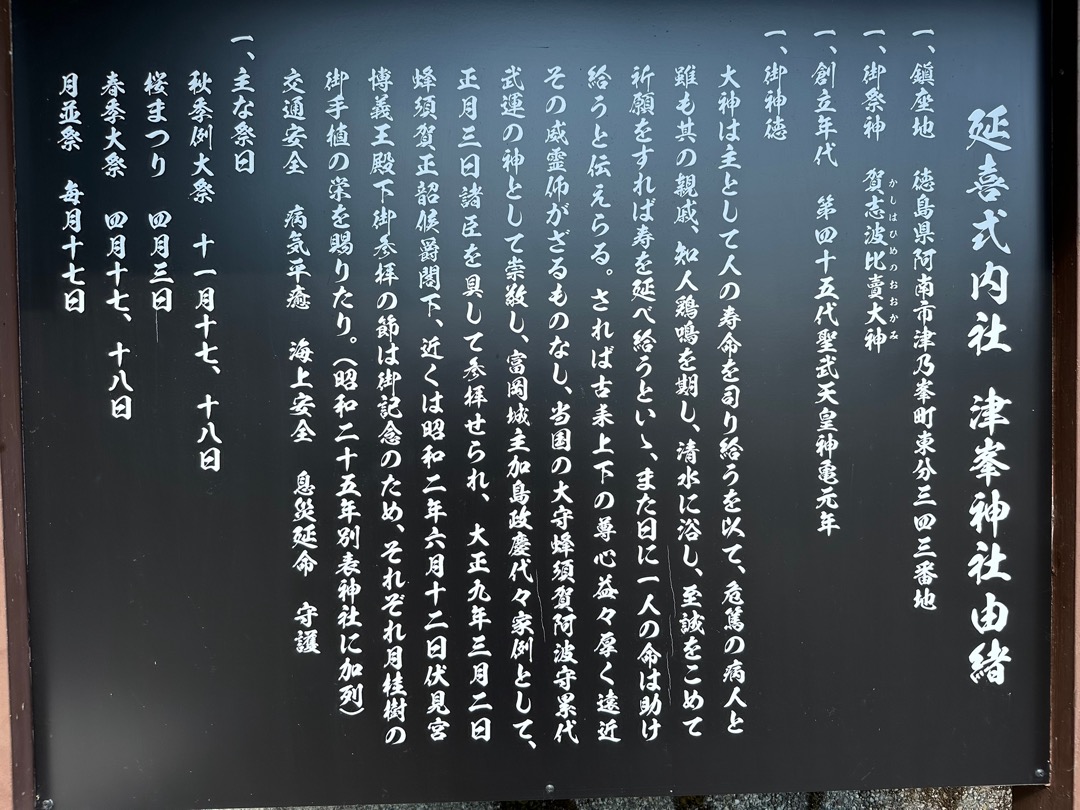 延喜式内社 津峯神社由緒
一、鎮座地 徳島県阿南市津乃峯町東分三四三番地
一、御祭神 賀志波比賣大神
かしはひめのおおかみ
一、創立年代 第四十五代聖武天皇神亀元年
一、御神徳
大神は主として人の寿命を司り給うを以て、危篤の病人と
雖も其の親戚、知人鶏鳴を期し、清水に浴し、至誠をこめて
祈願をすれば寿を延べ給うといゝ、また日に一人の命は助け
給うと伝えらる。されば古来上下の尊心益々厚く遠近
その威霊仰がざるものなし、当国の大守蜂須賀阿波守累代
武運の神として崇敬し、富岡城主加島政慶代々家例として、
正月三日諸臣を具して参拝せられ、大正九年三月二日
蜂須賀正韶侯爵閣下、近くは昭和二年六月十二日伏見宮
博義王殿下御参拝の節は御記念のため、それぞれ月桂樹の
御手植の栄を賜りたり。(昭和二十五年別表神社に加列)
交通安全 病気平癒 海上安全 息災延命 守護
一、主な祭日
秋季例大祭 十一月十七、十八日
桜まつり 四月三日
春季大祭 四月十七、十八日
月並祭 毎月十七日